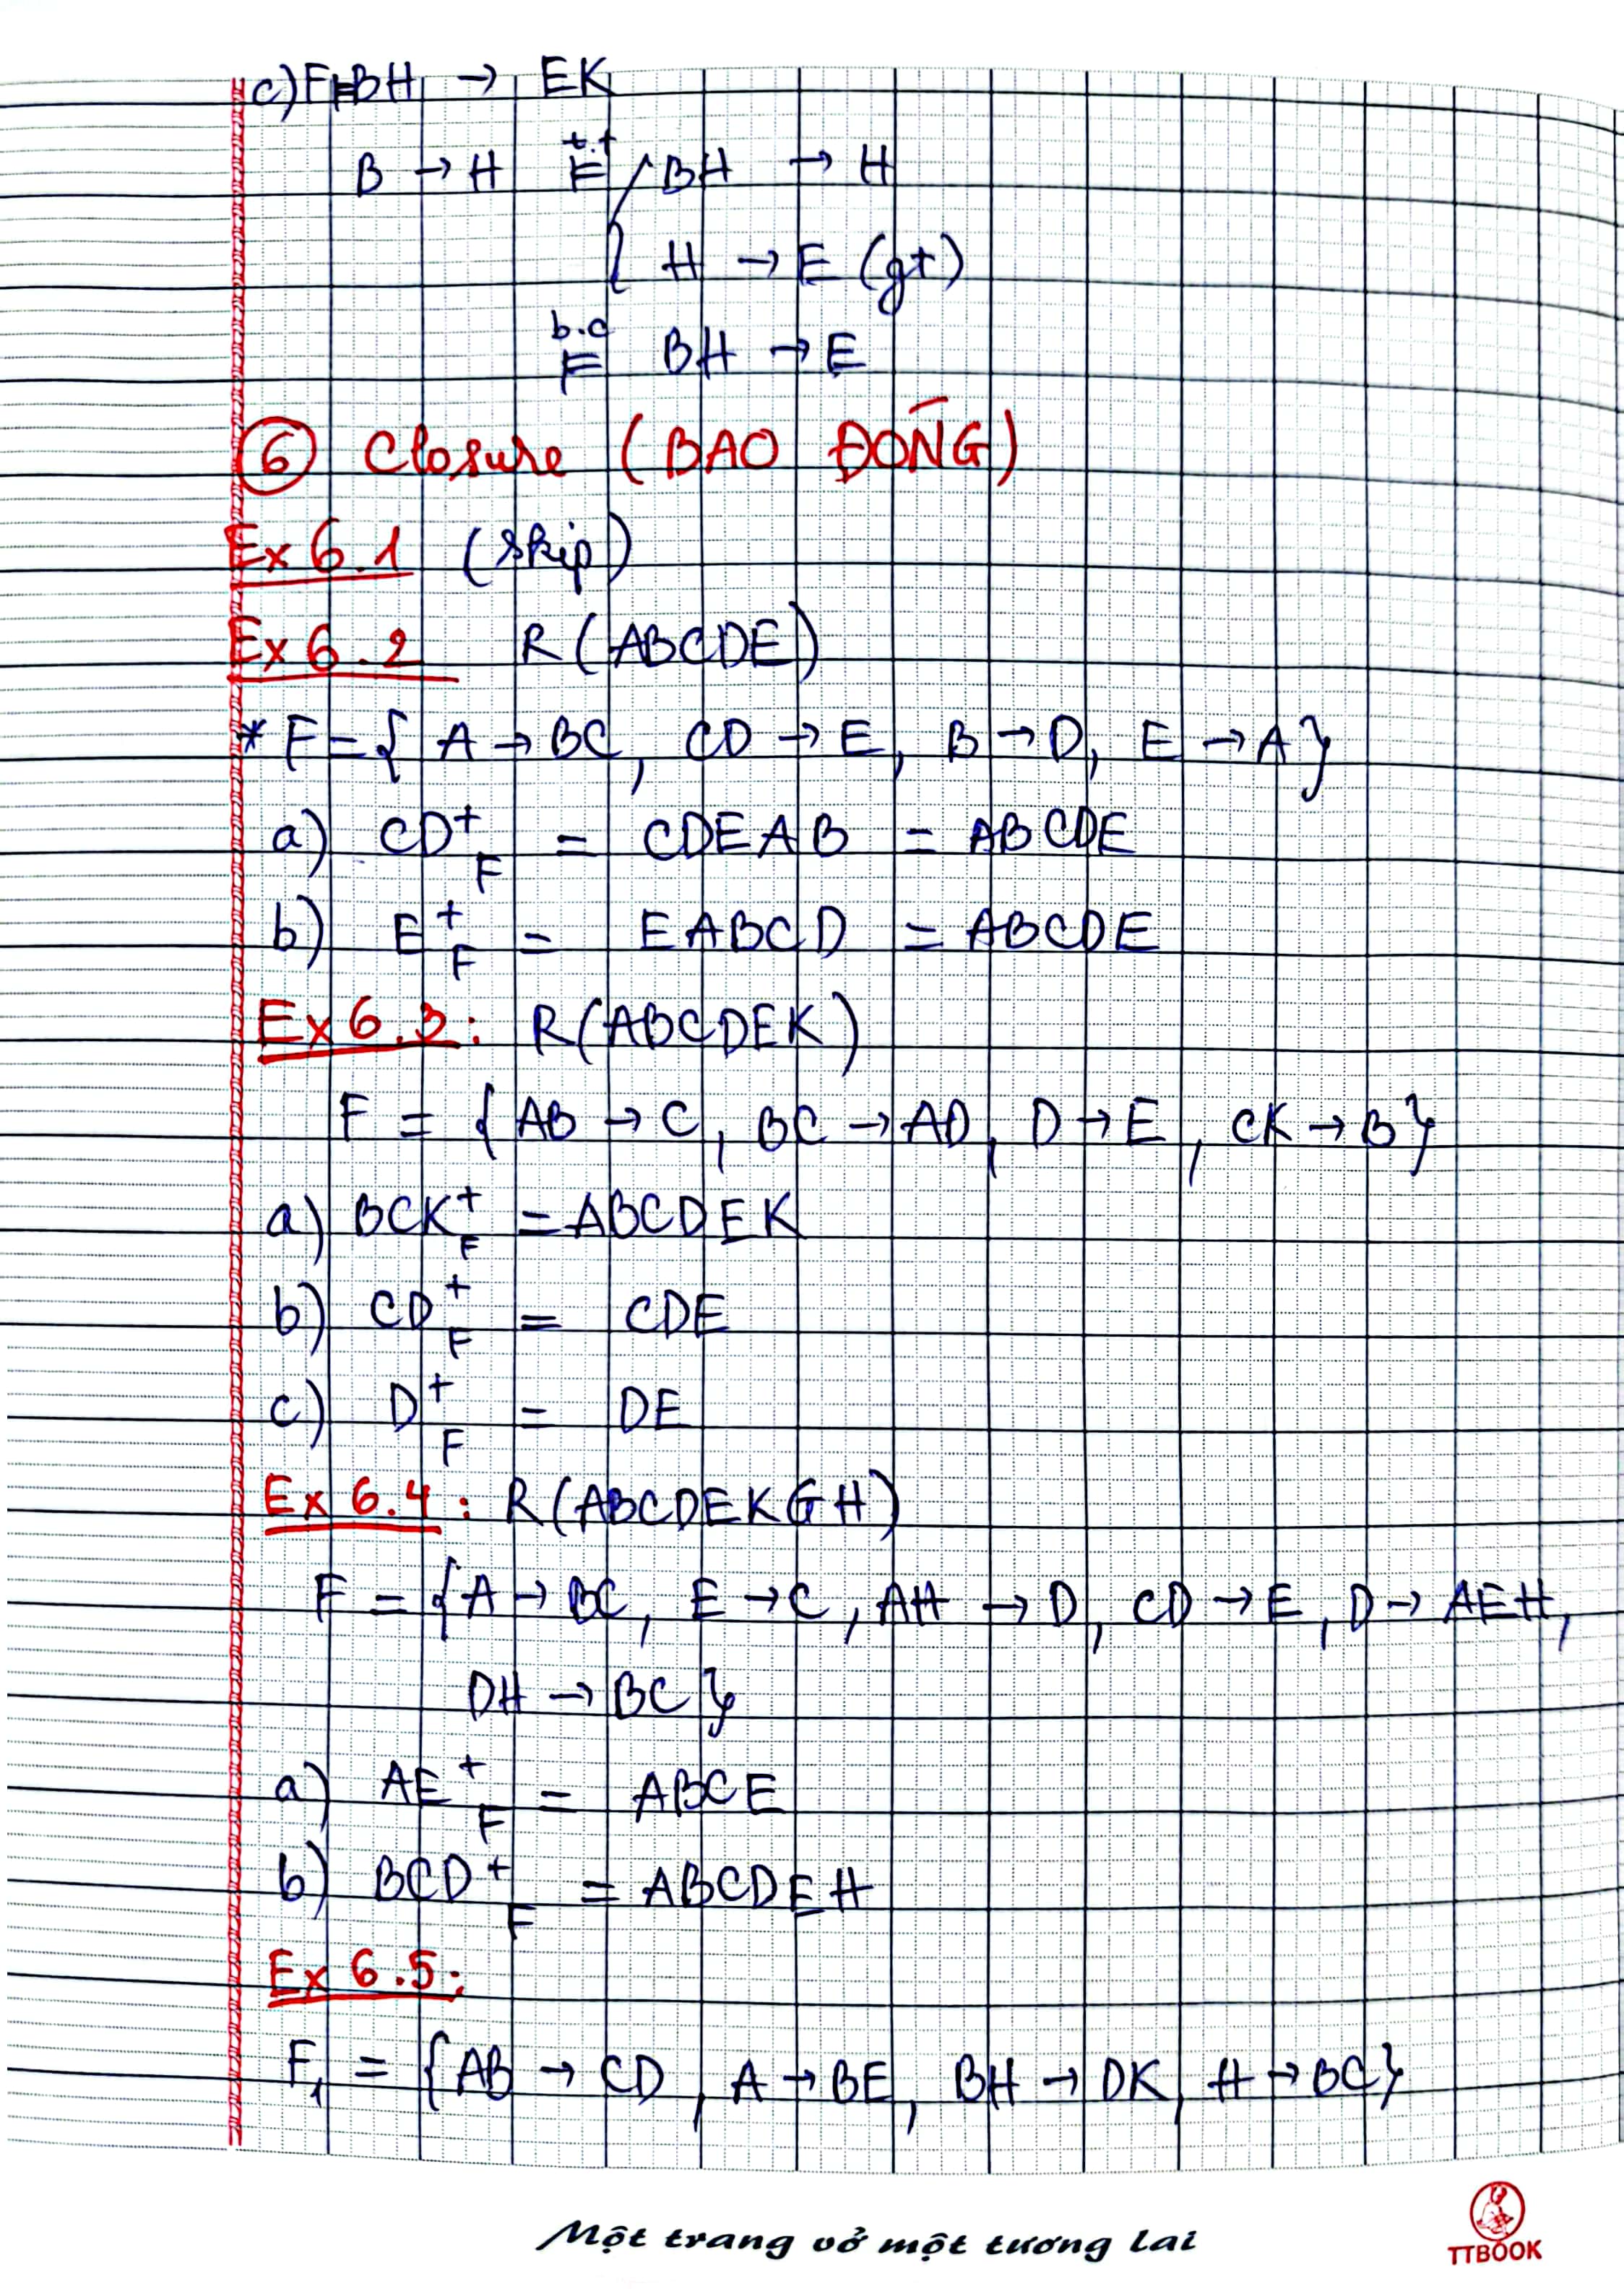 c) F ⊨ BH → EK
B → H ⊨ t.t { BH → H
H → E (gt)
b.c ⊨ BH → E
⑥ Closure (BAO ĐÓNG)
Ex 6.1 (skip)
Ex 6.2 R(ABCDE)
* F = { A → BC, CD → E, B → D, E → A }
a) CD⁺F = CDEAB = ABCDE
b) E⁺F = EABCD = ABCDE
Ex 6.3: R(ABCDEK)
F = { AB → C, BC → AD, D → E, CK → B }
a) BCK⁺F = ABCDEK
b) CD⁺F = CDE
c) D⁺F = DE
Ex 6.4: R(ABCDEKGH)
F = { A → BC, E → C, AH → D, CD → E, D → AEH,
DH → BC }
a) AE⁺F = ABCE
b) BCD⁺F = ABCDEH
Ex 6.5:
F₁ = { AB → CD, A → BE, BH → DK, H → BC }
Một trang vở một tương lai
TTBOOK